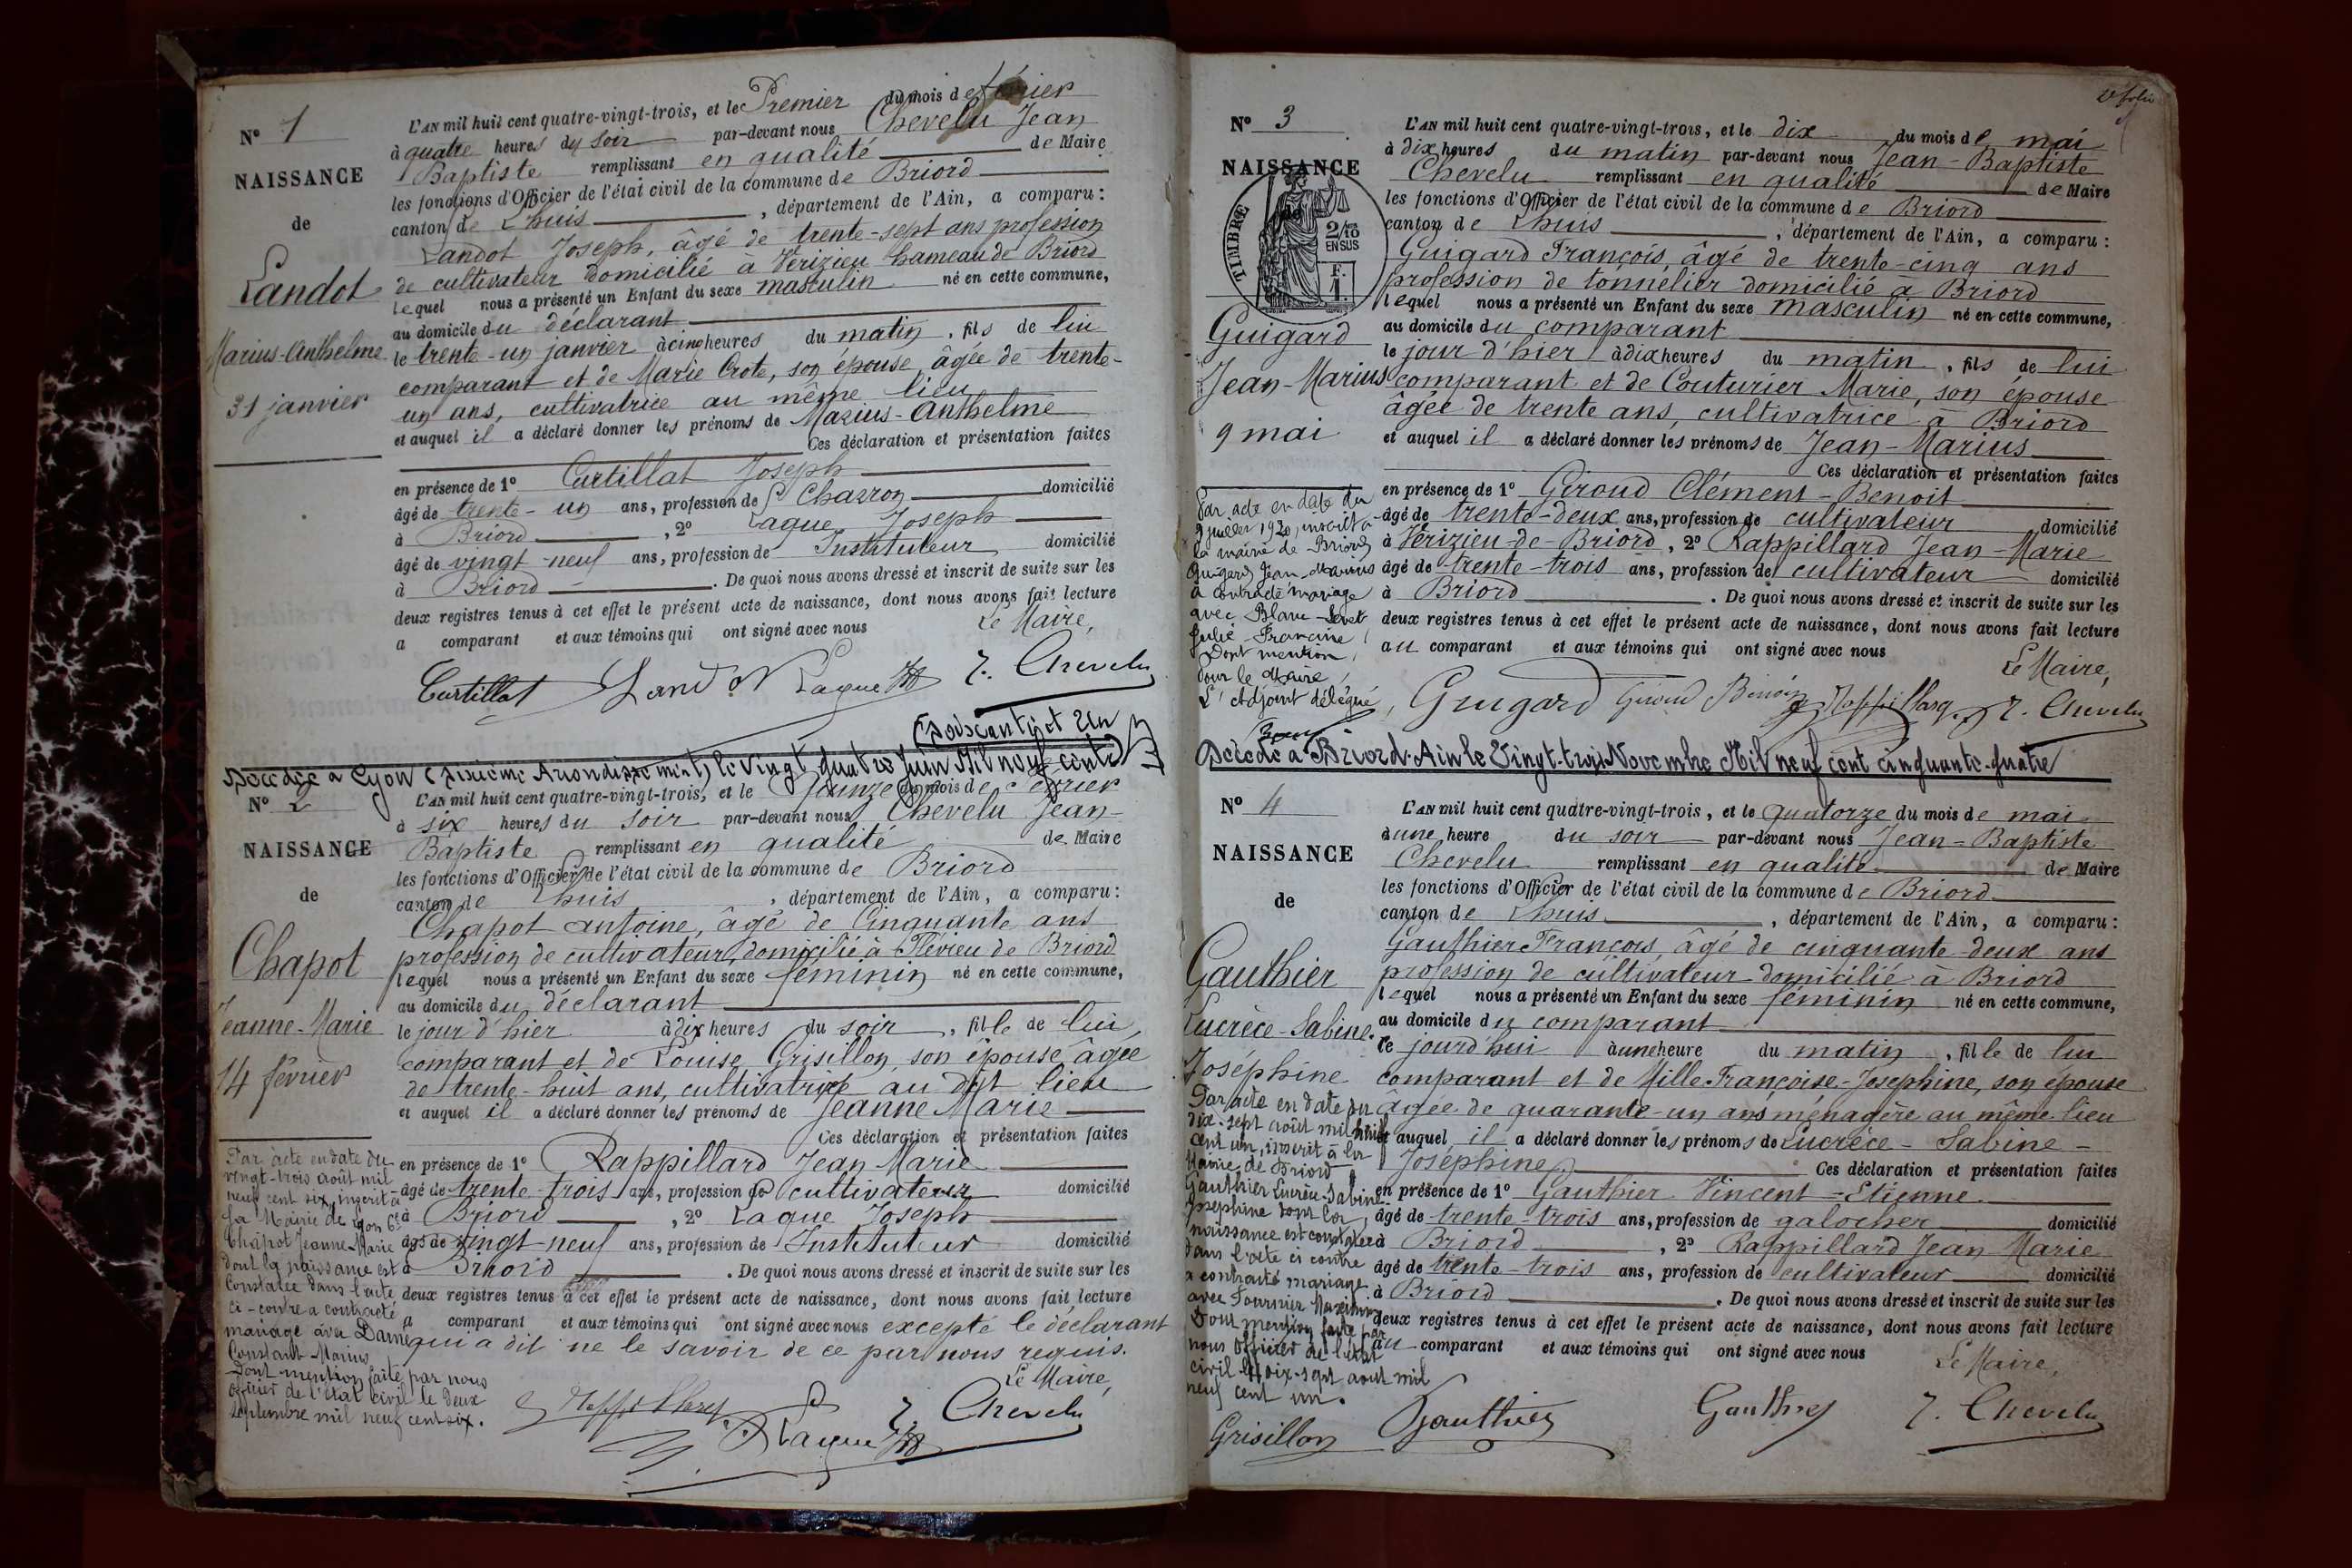 N° 1
NAISSANCE
de
Landot
Marius-Anthelme
31 janvier
L'AN mil huit cent quatre-vingt-trois, et le Premier du mois de février
à quatre heures du soir par-devant nous Chevelu Jean
Baptiste remplissant en qualité de Maire
les fonctions d'Officier de l'état civil de la commune de Briord
canton de Lhuis, département de l'Ain, a comparu :
Landot Joseph, âgé de trente-sept ans profession
de cultivateur domicilié à Vérizieu hameau de Briord
lequel nous a présenté un Enfant du sexe masculin né en cette commune,
au domicile du déclarant
le trente-un janvier à cinq heures du matin, fils de lui
comparant et de Marie Crote, son épouse, âgée de trente-
un ans, cultivatrice au même lieu
et auquel il a déclaré donner les prénoms de Marius-Anthelme
Ces déclaration et présentation faites
en présence de 1° Curtillat Joseph
âgé de trente-un ans, profession de Charron domicilié
à Briord, 2° Laque Joseph
âgé de vingt-neuf ans, profession de Instituteur domicilié
à Briord. De quoi nous avons dressé et inscrit de suite sur les
deux registres tenus à cet effet le présent acte de naissance, dont nous avons fait lecture
a comparant et aux témoins qui ont signé avec nous
Le Maire,
Curtillat Landot Laque J. Chevelu
soixante et un
Décédée à Lyon (sixième Arrondissement) le vingt quatre Juin Mil neuf cent
N° 2
NAISSANCE
de
Chapot
Jeanne-Marie
14 février
L'AN mil huit cent quatre-vingt-trois, et le Quinze du mois de Février
à six heures du soir par-devant nous Chevelu Jean-
Baptiste remplissant en qualité de Maire
les fonctions d'Officier de l'état civil de la commune de Briord
canton de Lhuis, département de l'Ain, a comparu :
Chapot Antoine, âgé de Cinquante ans
profession de cultivateur, domicilié à Flévieu de Briord
lequel nous a présenté un Enfant du sexe féminin né en cette commune,
au domicile du déclarant
le jour d'hier à dix heures du soir, fille de lui,
comparant et de Louise Grisillon, son épouse âgée
de trente-huit ans, cultivatrice au dit lieu
et auquel il a déclaré donner les prénoms de Jeanne Marie
Ces déclaration et présentation faites
en présence de 1° Rappillard Jean Marie
âgé de trente-trois ans, profession de cultivateur domicilié
à Briord, 2° Laque Joseph
âgé de vingt-neuf ans, profession de Instituteur domicilié
à Briord. De quoi nous avons dressé et inscrit de suite sur les
deux registres tenus à cet effet le présent acte de naissance, dont nous avons fait lecture
a comparant et aux témoins qui ont signé avec nous excepté le déclarant
qui a dit ne le savoir de ce par nous requis.
Le Maire,
Laque J. Chevelu
Par acte en date du
vingt-trois août mil
neuf cent six, inscrit à
la Mairie de Lyon 6e
Chapot Jeanne-Marie
dont la naissance est
Constatée dans l'acte
ci-contre a contracté
mariage avec Dame
Constant-Marius
Dont mention faite par nous
officier de l'état civil le deux
septembre mil neuf cent six.
2e folio
N° 3
NAISSANCE
de
TIMBRE
2/10 EN SUS
F.
1.
Guigard
Jean-Marius
9 mai
L'AN mil huit cent quatre-vingt-trois, et le dix du mois de mai
à dix heures du matin par-devant nous Jean-Baptiste
Chevelu remplissant en qualité de Maire
les fonctions d'Officier de l'état civil de la commune de Briord
canton de Lhuis, département de l'Ain, a comparu :
Guigard François, âgé de trente-cinq ans
profession de tonnelier domicilié à Briord
lequel nous a présenté un Enfant du sexe masculin né en cette commune,
au domicile du comparant
le jour d'hier à dix heures du matin, fils de lui
comparant et de Couturier Marie, son épouse
âgée de trente ans, cultivatrice à Briord
et auquel il a déclaré donner les prénoms de Jean-Marius
Ces déclaration et présentation faites
en présence de 1° Giroud Clément-Benoit
âgé de trente-deux ans, profession de cultivateur domicilié
à Vérizieu-de-Briord, 2° Rappillard Jean-Marie
âgé de trente-trois ans, profession de cultivateur domicilié
à Briord. De quoi nous avons dressé et inscrit de suite sur les
deux registres tenus à cet effet le présent acte de naissance, dont nous avons fait lecture
au comparant et aux témoins qui ont signé avec nous
Le Maire,
Guigard Giroud Benoit J. Chevelu
Par acte en date du
9 juillet 1920, inscrit à
la mairie de Briord
Guigard Jean-Marius
a contracté mariage
avec Blanc
Julie Francine
Dont mention,
Pour le Maire,
L'Adjoint délégué,
Décédé à Briord-Ain le Vingt-trois Novembre Mil neuf cent cinquante-quatre
N° 4
NAISSANCE
de
Gauthier
Lucrèce-Sabine-
Joséphine
L'AN mil huit cent quatre-vingt-trois, et le quatorze du mois de mai
à une heure du soir par-devant nous Jean-Baptiste
Chevelu remplissant en qualité de Maire
les fonctions d'Officier de l'état civil de la commune de Briord
canton de Lhuis, département de l'Ain, a comparu :
Gauthier François, âgé de cinquante-deux ans
profession de cultivateur domicilié à Briord
lequel nous a présenté un Enfant du sexe féminin né en cette commune,
au domicile du comparant
ce jourd'hui à une heure du matin, fille de lui
comparant et de Mille Françoise-Josephine, son épouse
âgée de quarante-un ans, ménagère au même lieu
et auquel il a déclaré donner les prénoms de Lucrèce-Sabine-
Joséphine Ces déclaration et présentation faites
en présence de 1° Gauthier Vincent-Etienne
âgé de trente-trois ans, profession de galocher domicilié
à Briord, 2° Rappillard Jean Marie
âgé de trente-trois ans, profession de cultivateur domicilié
à Briord. De quoi nous avons dressé et inscrit de suite sur les
deux registres tenus à cet effet le présent acte de naissance, dont nous avons fait lecture
au comparant et aux témoins qui ont signé avec nous
Le Maire,
Gauthier Gauthier J. Chevelu
Par acte en date du
dix-sept août mil neuf
cent un, inscrit à la
Mairie de Briord
Gauthier Lucrèce-Sabine
Josephine dont la
naissance est constatée
dans l'acte ci contre
a contracté mariage
avec Fournier
Dont mention faite par
nous officier de l'état
civil le dix-sept août mil
neuf cent un.
Grisillon